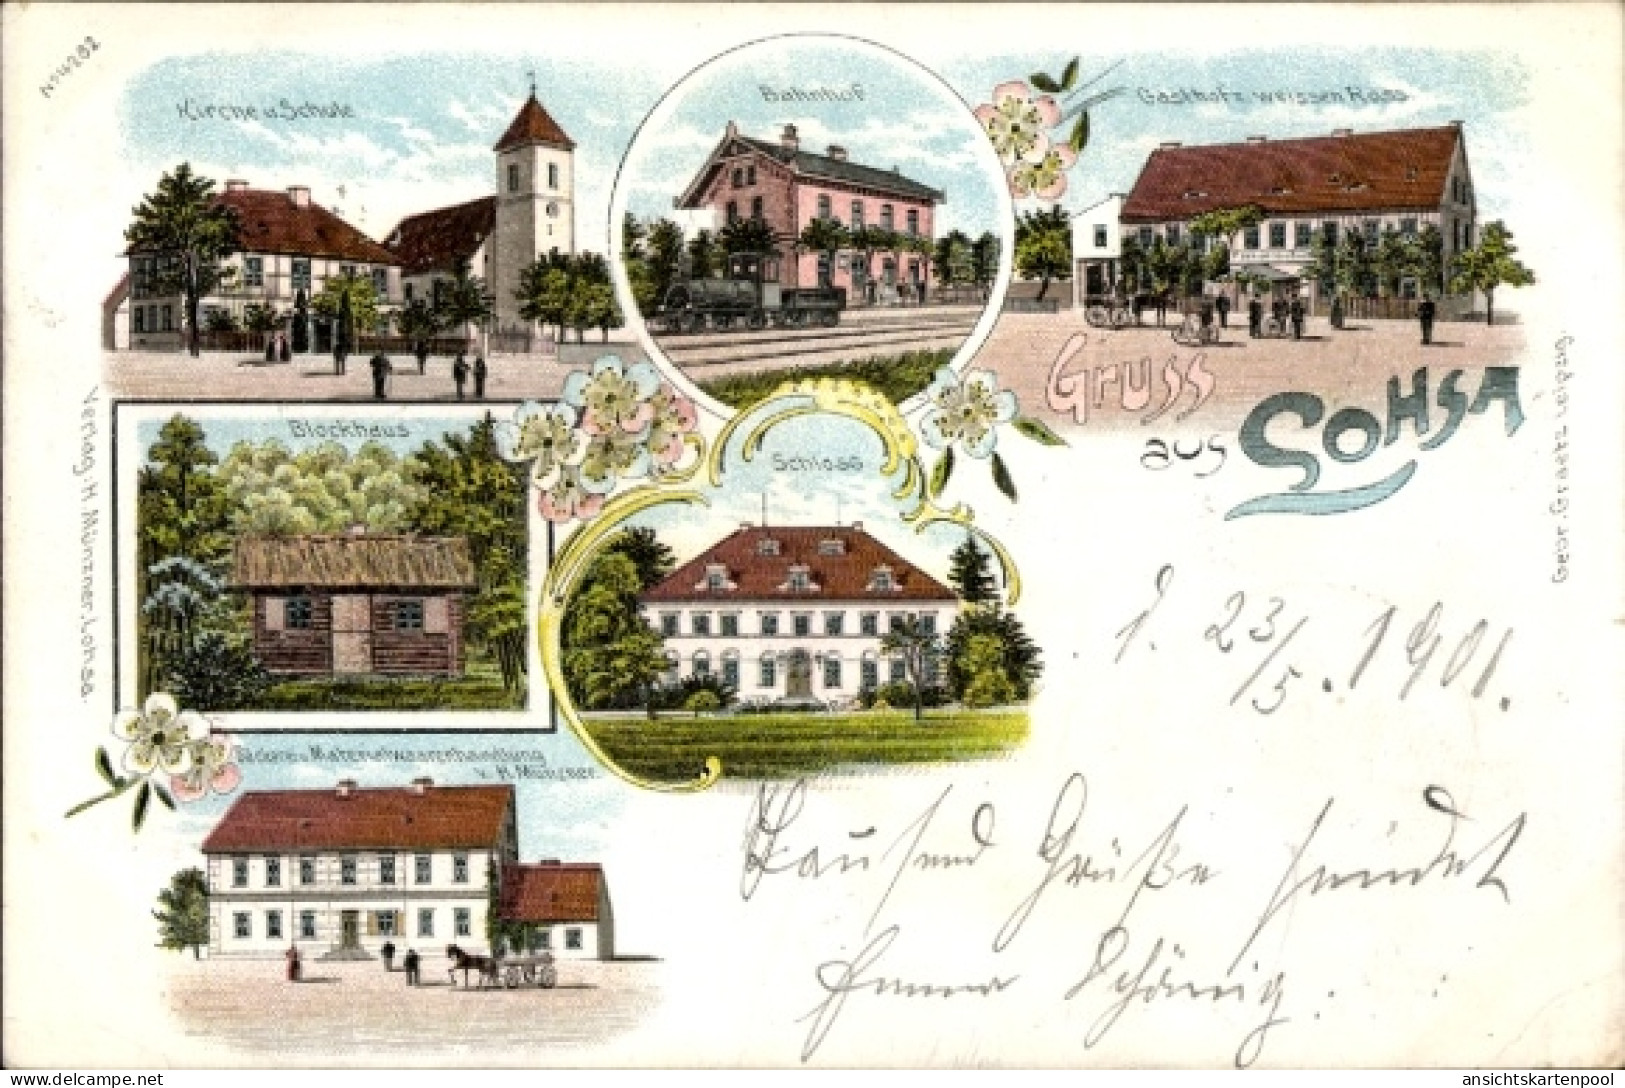 No 4282
Kirche u. Schule
Bahnhof
Gasthof z. weissen Ross
Gruss
aus Lohsa
Blockhaus
Schloss
Verlag: H. Münzner, Lohsa.
Gebr. Graetz Leipzig.
Materialwaarenhandlung
v. H. Münzner.
d. 23/5. 1901.
Tausend Grüße sendet
Emma
delcampe.net
ansichtskartenpool